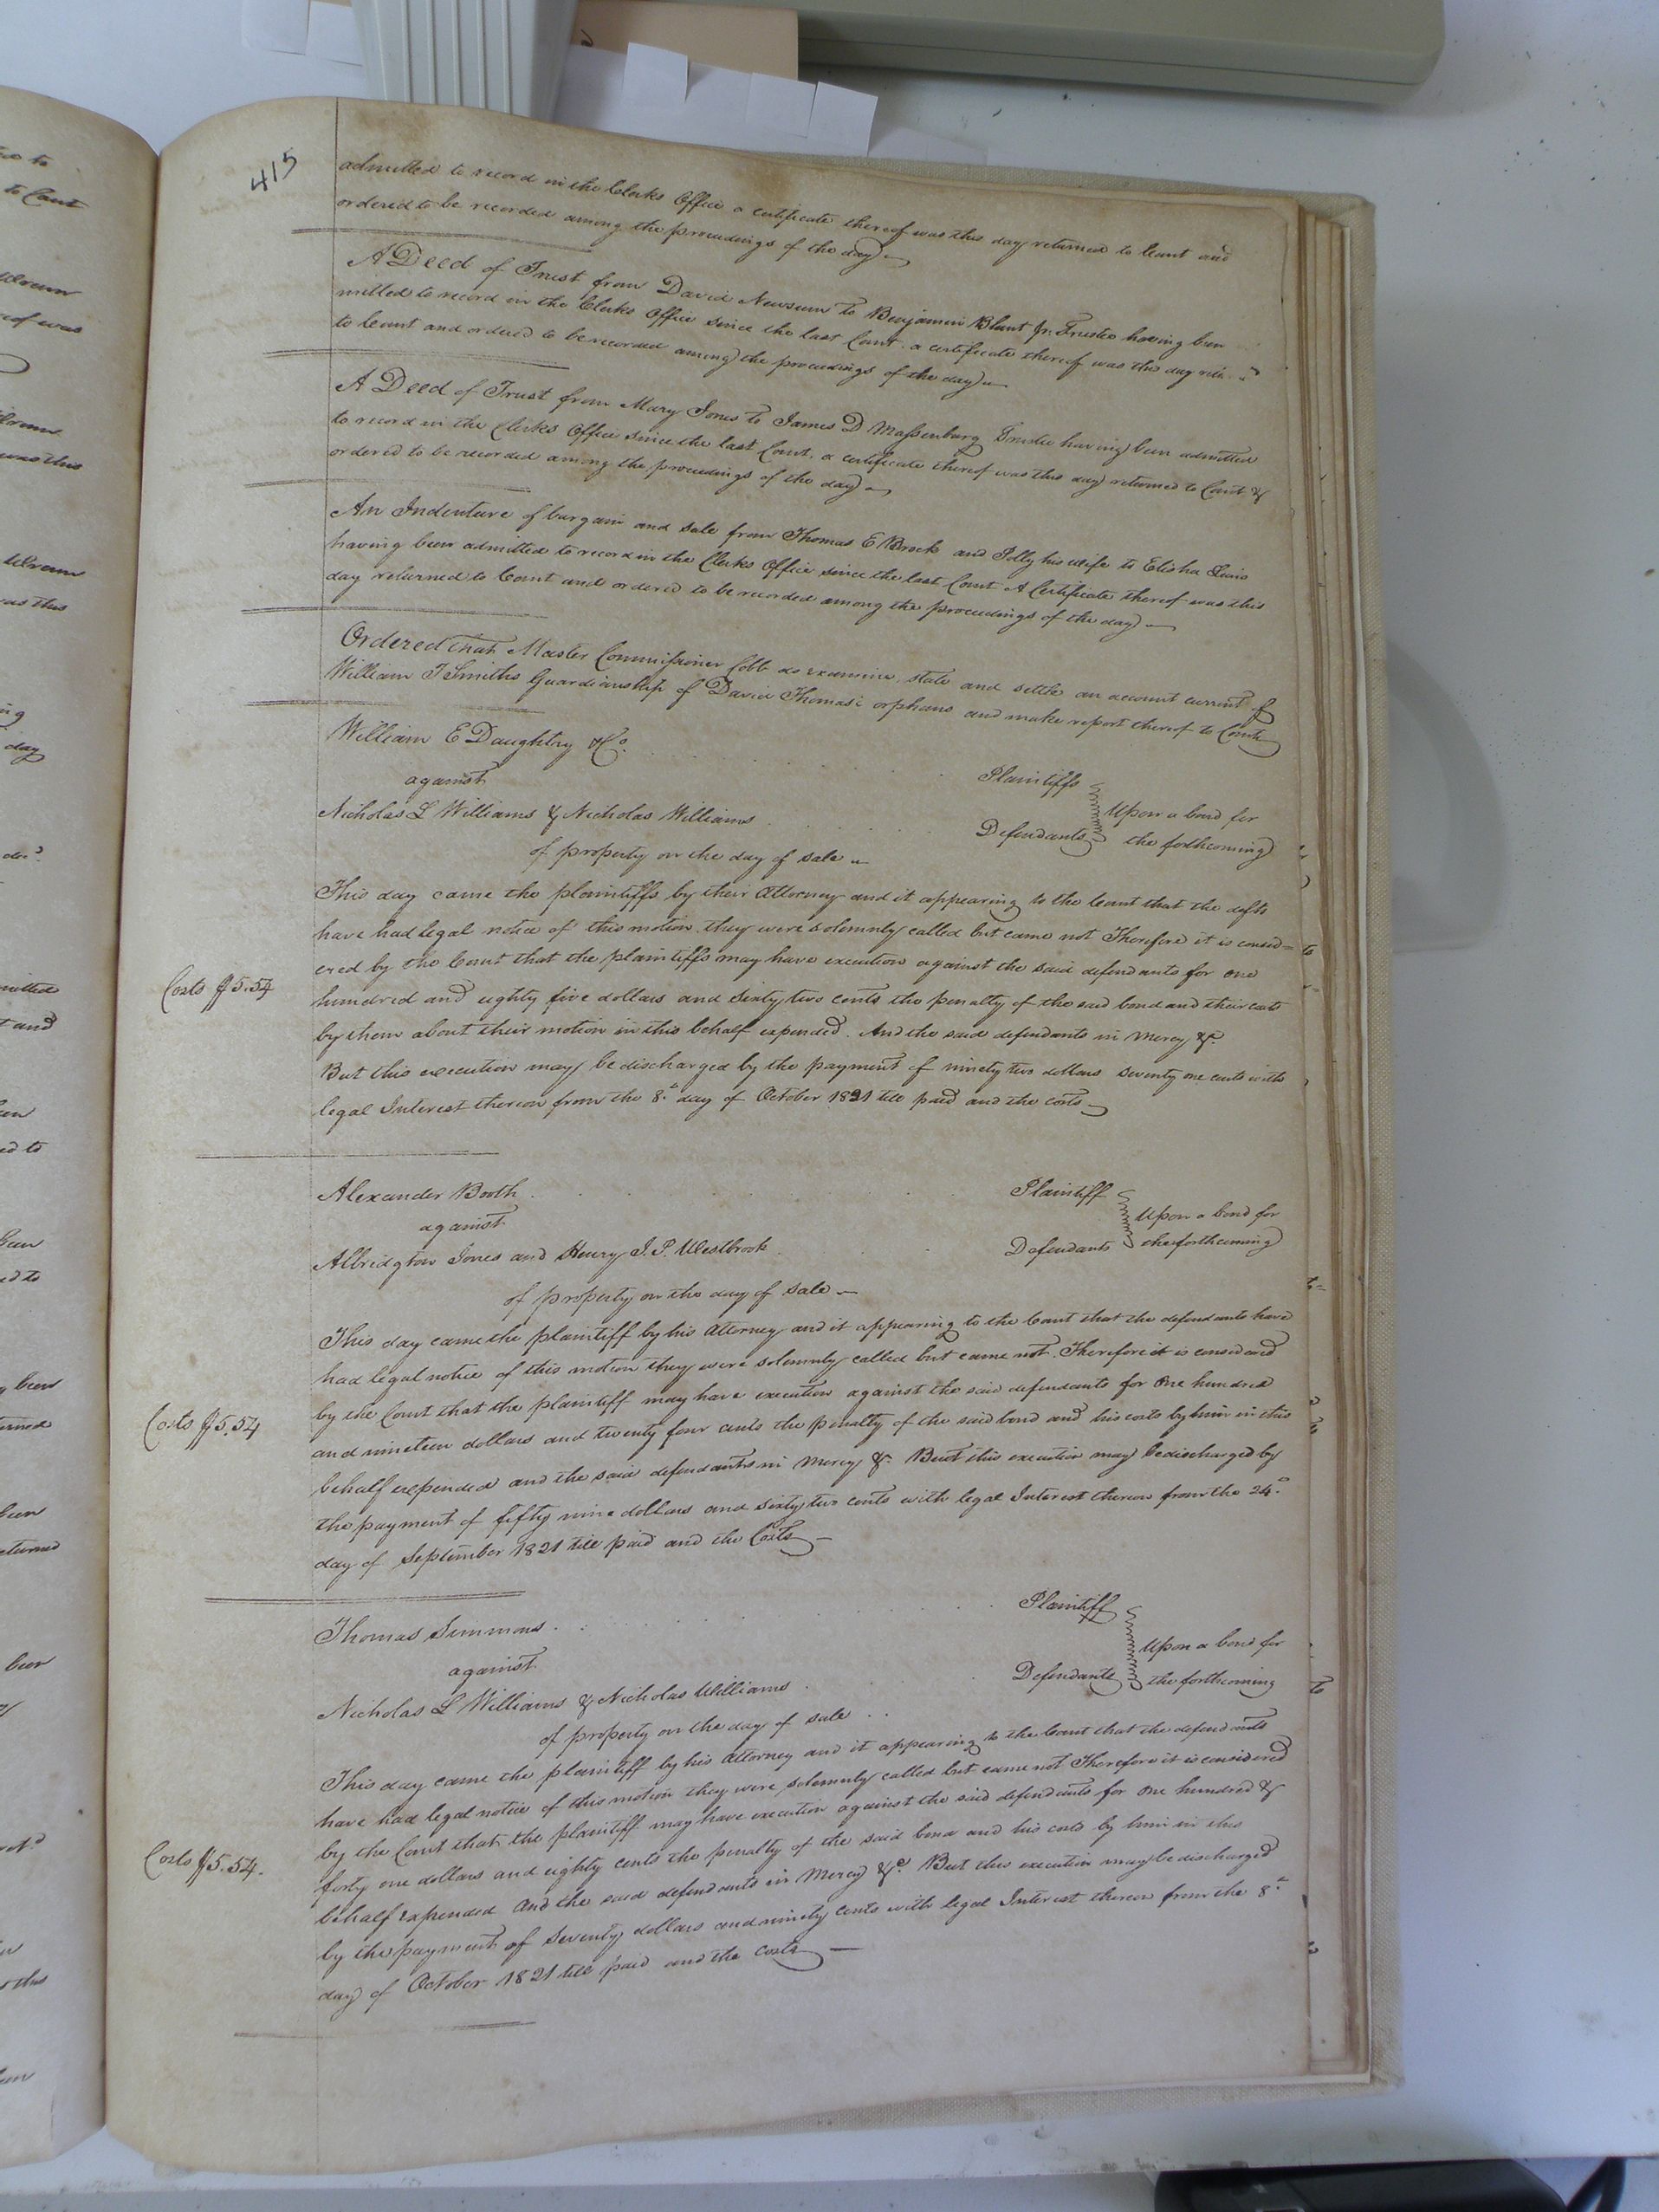 415
admitted to record in the Clerks Office a certificate thereof was this day returned to Court and
ordered to be recorded among the proceedings of the day
A Deed of Trust from David Newsum to Benjamin Blunt Jr. Trustee having been
mitted to record in the Clerks Office since the last Court a certificate thereof was this day
to Court and ordered to be recorded among the proceedings of the day
A Deed of Trust from Mary Jones to James D Massenburg Trustee having been admitted
to record in the Clerks Office since the last Court, a certificate thereof was this day returned to Court &
ordered to be recorded among the proceedings of the day
An Indenture of bargain and sale from Thomas E Brock and Polly his wife to Elisha
having been admitted to record in the Clerks Office since the last Court A Certificate thereof was this
day returned to Court and ordered to be recorded among the proceedings of the day
Ordered that Master Commissioner Cobb do examine, state and settle an account current of
William T Smiths Guardianship of David Thomas's orphans and make report thereof to Court
William E Daughtry & Co. Plaintiffs
against Upon a bond for
Nicholas L Williams & Nicholas Williams Defendants the forthcoming
of property on the day of sale
This day came the plaintiffs by their Attorney and it appearing to the Court that the defts
have had legal notice of this motion they were solemnly called but came not Therefore it is consid=
ered by the Court that the plaintiffs may have execution against the said defendants for one
Costs $5.54
hundred and eighty five dollars and Sixty two cents the penalty of the said bond and their costs
by them about their motion in this behalf expended. And the said defendants in Mercy &c.
But this execution may be discharged by the payment of ninety two dollars seventy one cents with
legal Interest thereon from the 8th day of October 1821 till paid and the costs
Alexander Booth Plaintiff
against Upon a bond for
Albridgton Jones and Henry J. P. Westbrook Defendants the forthcoming
of property on the day of sale
This day came the plaintiff by his Attorney and it appearing to the Court that the defendants have
had legal notice of this motion they were solemnly called but came not. Therefore it is considered
by the Court that the plaintiff may have execution against the said defendants for One hundred
Costs $5.54
and nineteen dollars and twenty four cents the penalty of the said bond and his costs by him in this
behalf expended and the said defendants in Mercy &c. But this execution may be discharged by
the payment of fifty nine dollars and sixty two cents with legal Interest thereon from the 24th
day of September 1821 till paid and the Costs
Thomas Simmons Plaintiff
against Upon a bond for
Nicholas L Williams & Nicholas Williams Defendants the forthcoming
of property on the day of sale
This day came the plaintiff by his Attorney and it appearing to the Court that the defendants
have had legal notice of this motion they were solemnly called but came not Therefore it is considered
by the Court that the plaintiff may have execution against the said defendants for One hundred &
Costs $5.54.
forty one dollars and eighty cents the penalty of the said bond and his costs by him in this
behalf expended And the said defendants in Mercy &c. But this execution may be discharged
by the payment of Seventy dollars and ninety cents with legal Interest thereon from the 8th
day of October 1821 till paid and the costs